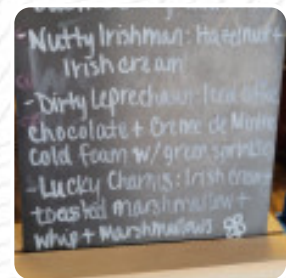 -Nutty Irishman: Hazelnut +
Irish cream
-Dirty Leprechaun: Iced
chocolate + Creme de Menthe
cold foam w/ green sprinkles
-Lucky Charms: Irish cream
toasted marshmallow +
whip + Marshmallows